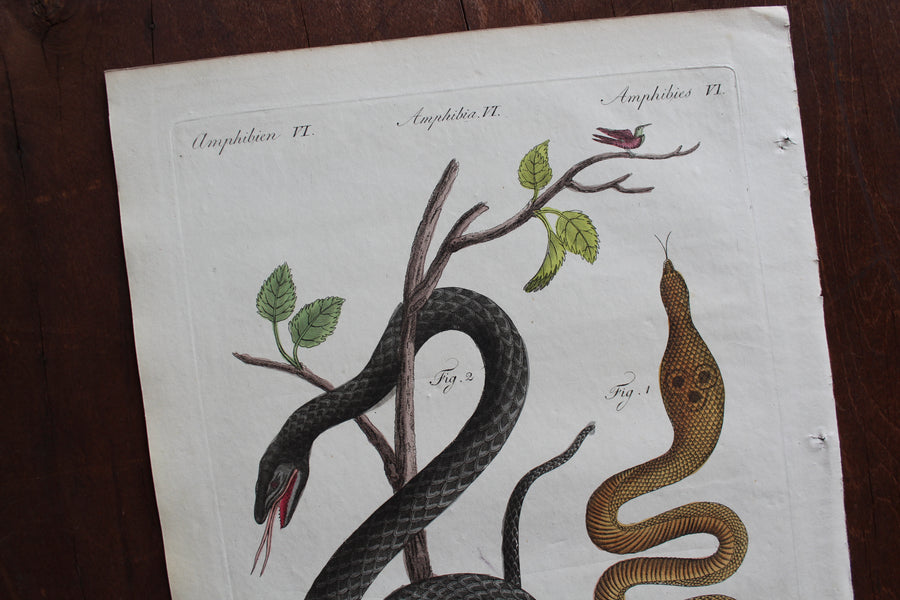 Amphibien VI.
Amphibia. VI.
Amphibies VI.
Fig. 2
Fig. 1